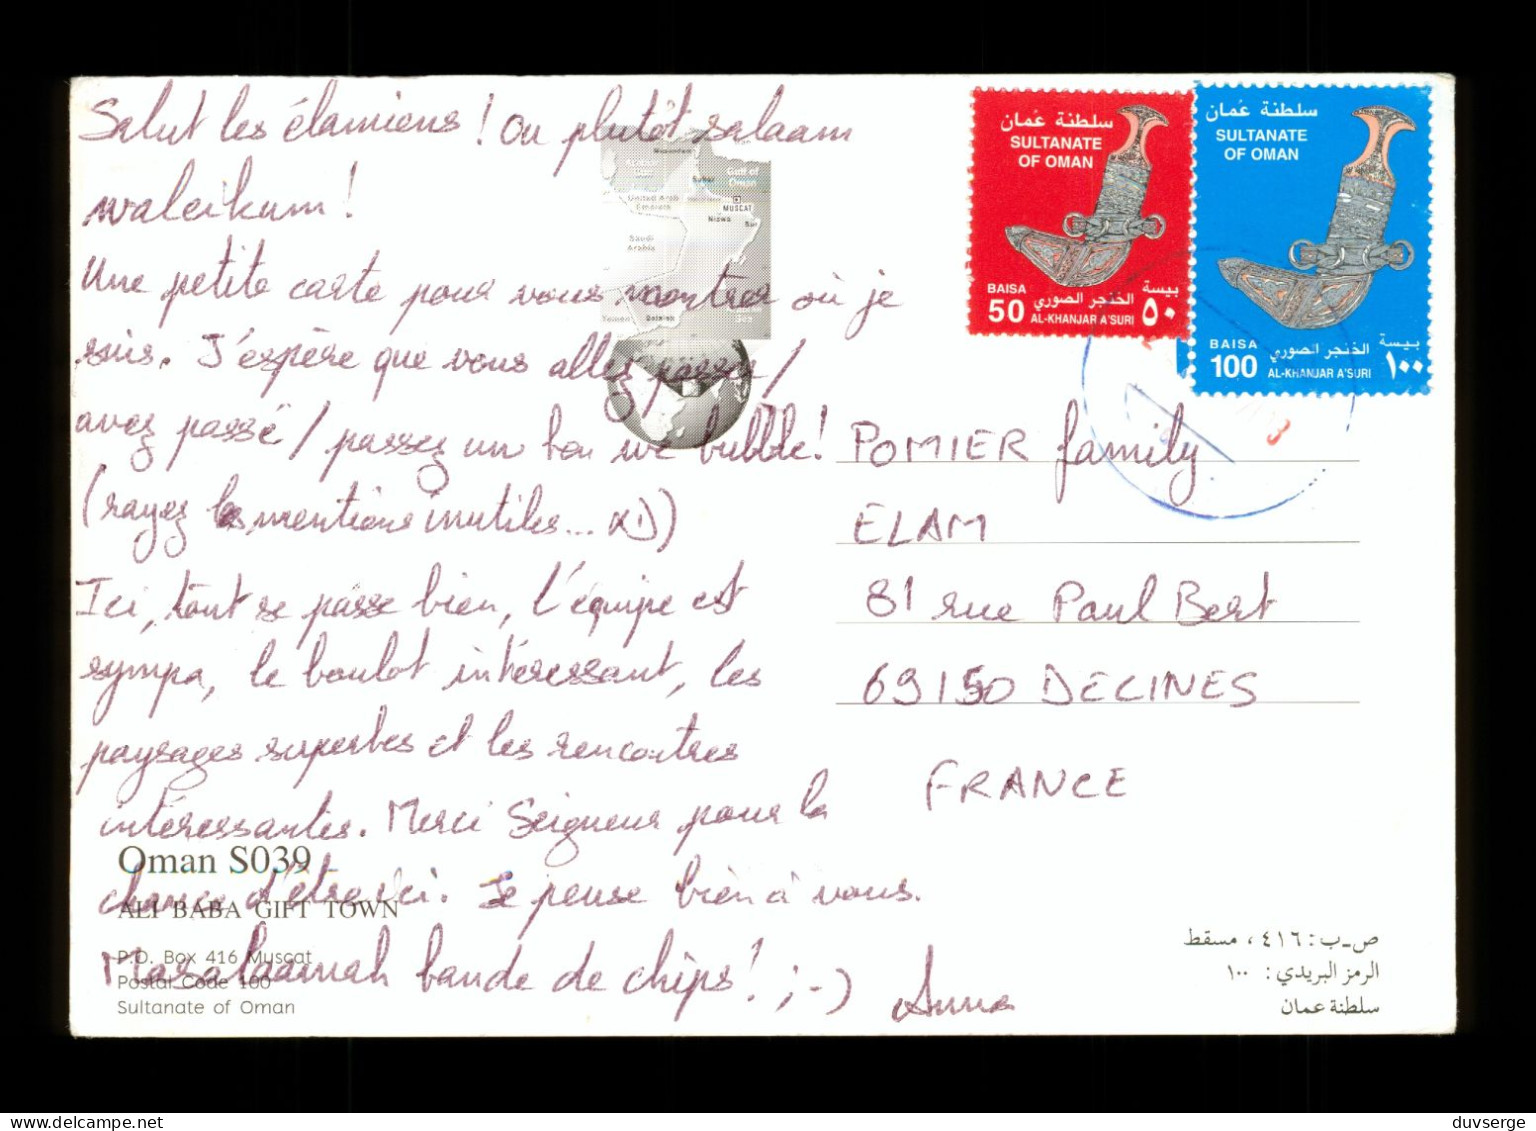 Salut les élamiens ! Ou plutôt salaam
waleikum !
Une petite carte pour vous montrer où je
suis. J'espère que vous allez passer /
avez passé / passez un bon we bubble !
(rayez les mentions inutiles... xD)
Ici, tout se passe bien, l'équipe est
sympa, le boulot intéressant, les
paysages superbes et les rencontres
intéressantes. Merci Seigneur pour la
chance d'être ici. Je pense bien à vous.
Masalaamah bande de chips ! ;-) Anna
سلطنة عمان
SULTANATE
OF OMAN
BAISA
50
بيسة
٥٠
الخنجر الصوري
AL-KHANJAR A'SURI
سلطنة عمان
SULTANATE
OF OMAN
BAISA
100
بيسة
١٠٠
الخنجر الصوري
AL-KHANJAR A'SURI
Gulf of
Oman
United Arab
Emirates
MUSCAT
Nizwa
Sur
Saudi
Arabia
Yemen
POMIER family
ELAM
81 rue Paul Bert
69150 DECINES
FRANCE
Oman S039
ALI BABA GIFT TOWN
P.O. Box 416 Muscat
Postal Code 100
Sultanate of Oman
ص-ب: ٤١٦، مسقط
الرمز البريدي: ١٠٠
سلطنة عمان
duvserge